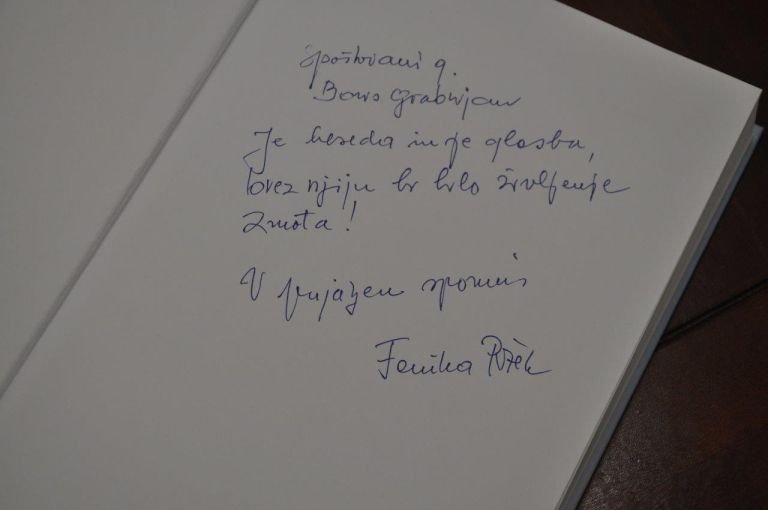 Spoštovani g.
Boris Grabrijan
Je beseda in je glasba,
brez njiju bi bilo življenje
zmota!
V prijazen spomin
Fanika Požek